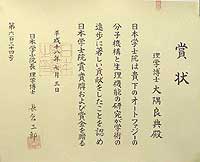 賞状
理学博士 大隅良典殿
日本学士院は貴下のオートファジーの
分子機構と生理機能の研究が学術の
進歩に著しい貢献をしたことを認め
日本学士院賞賞牌および賞金を贈る
平成十八年七月三日
日本学士院長 理学博士 長倉三郎